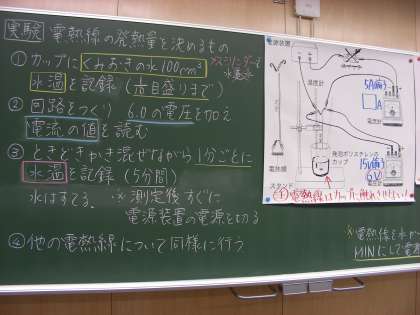 実験 電熱線の発熱量を決めるもの
① カップにくみおきの水100cm³
水温を記録(1/10目盛りまで)
② 回路をつくり 6.0の電圧を加え
電流の値を読む
③ ときどきかき混ぜながら1分ごとに
水温を記録(5分間)
水はすてる。 ※測定後すぐに
電源装置の電源を切る
④ 他の電熱線について同様に行う
電源装置
温度計
5A端子
A
電流計
発泡ポリスチレンの
カップ
電熱線
スタンド
15V端子
6V
電圧計
※電熱線を水か
MINにして電源